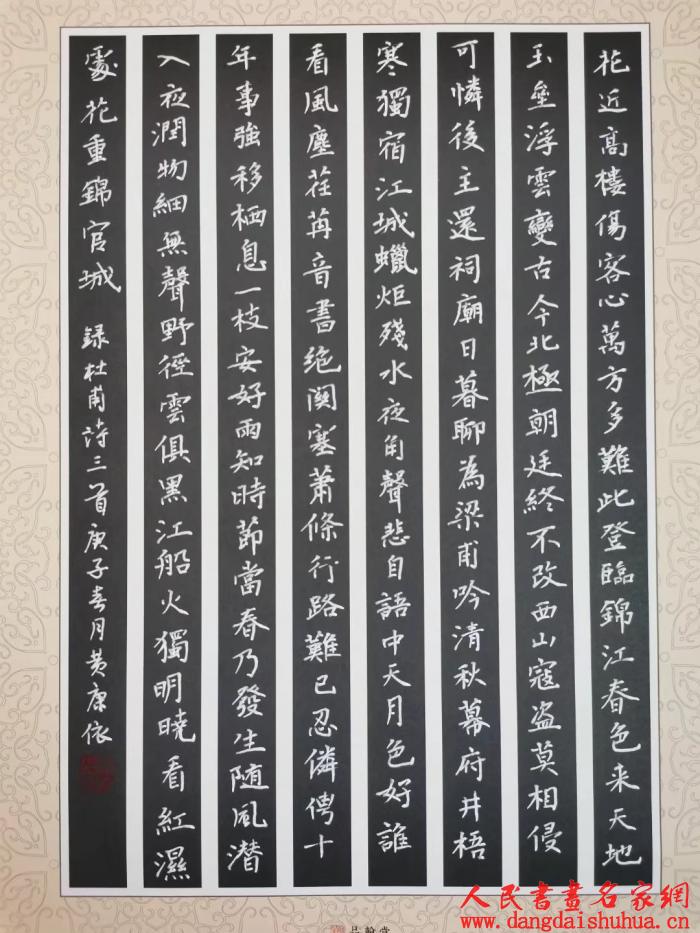 花近高樓傷客心萬方多難此登臨錦江春色来天地
玉壘浮雲變古今北極朝廷終不改西山寇盗莫相侵
可憐後主還祠廟日暮聊為梁甫吟清秋幕府井梧
寒獨宿江城蠟炬殘水夜角聲悲自語中天月色好誰
看風塵荏苒音書绝関塞蕭條行路難已忍伶俜十
年事強移栖息一枝安好雨知時節當春乃發生随風潜
入夜潤物細無聲野徑雲俱黑江船火獨明曉看紅濕
處花重錦官城 録杜甫詩三首庚子春月黄康依
人民書畫名家網
www.dangdaishuhua.cn
品翰堂